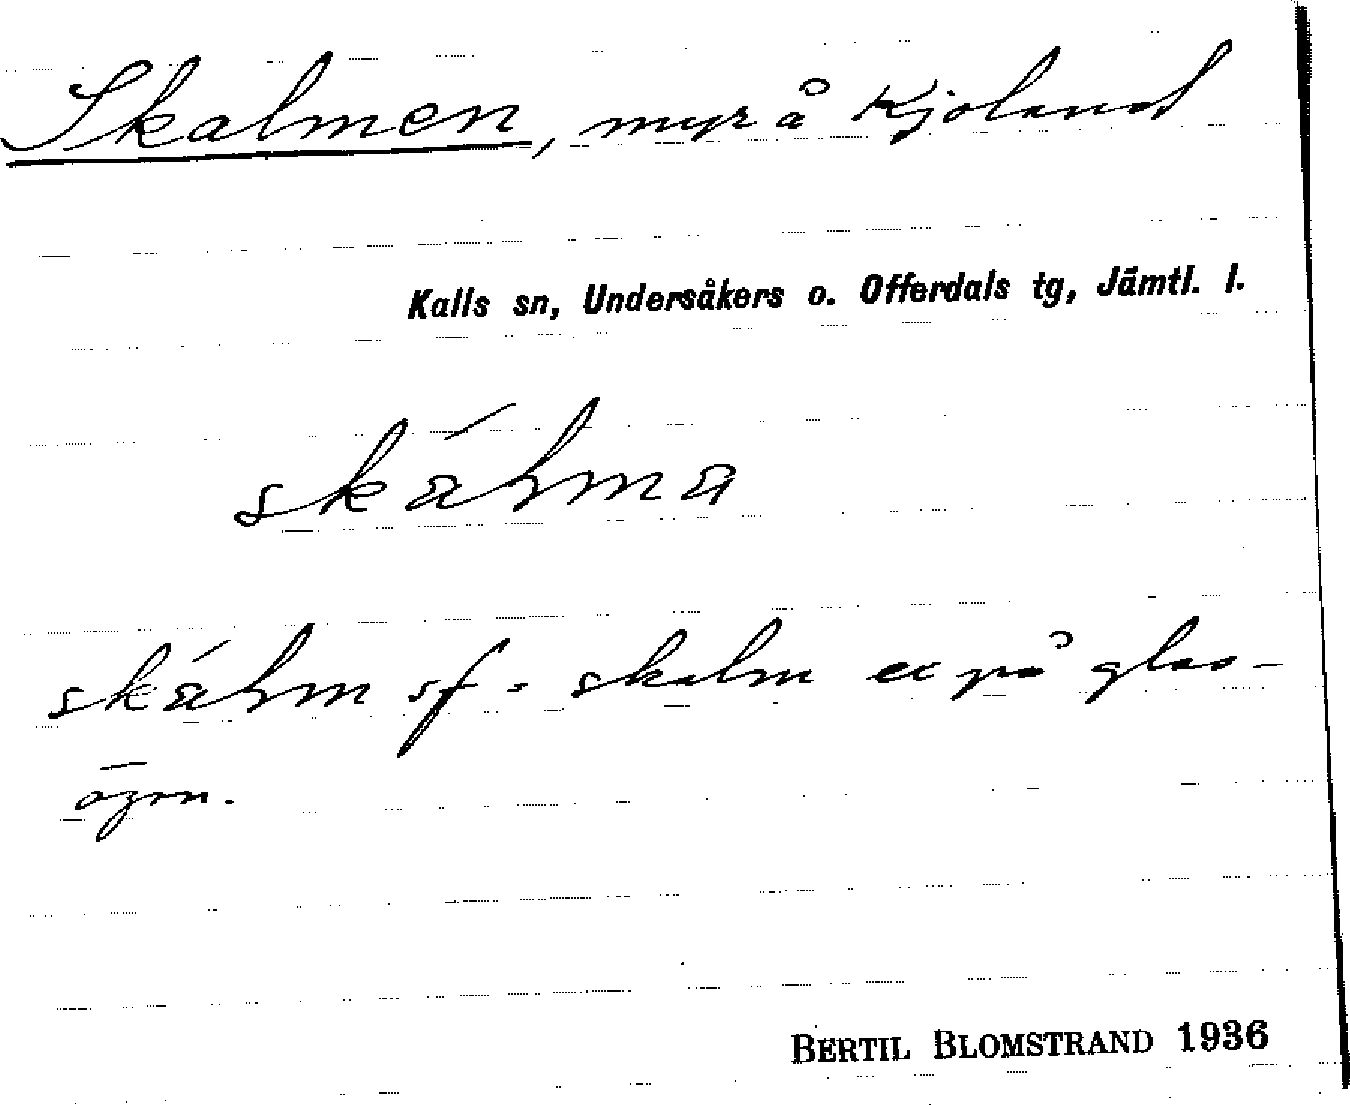 Skalmen, myr å Kjoland
Kalls sn, Undersåkers o. Offerdals tg, Jämtl. l.
skálma
skálm sf. skalm ex på glas-
ögon.
BERTIL BLOMSTRAND 1936